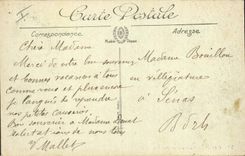 Carte Postale
Correspondance
Adresse
Chère Madame
Merci de votre bon souvenir
et bonnes vacances à tous
comme vous et
je languis de reprendre
nos petites causeries.
Bon souvenir à Madame
de nous
V Mallet
Madame Bouillon
en villégiature
à Sénas
B. d. R.